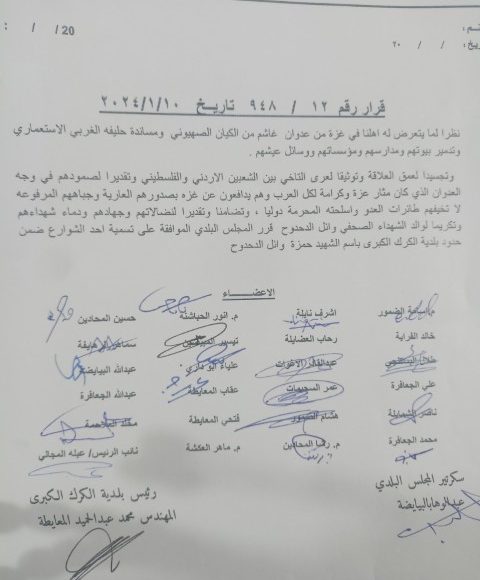 20 / / :
ـم :
ـخ : / / ٢٠
قرار رقم ١٢ / ٩٤٨ تاريخ ٢٠٢٤/١/١٠
نظرا لما يتعرض له اهلنا في غزة من عدوان غاشم من الكيان الصهيوني ومساندة حليفه الغربي الاستعماري
وتدمير بيوتهم ومدارسهم ومؤسساتهم ووسائل عيشهم .
وتجسيدا لعمق العلاقة وتوثيقا لعرى التاخي بين الشعبين الاردني والفلسطيني وتقديرا لصمودهم في وجه
العدوان الذي كان مثار عزة وكرامة لكل العرب وهم يدافعون عن غزه بصدورهم العارية وجباههم المرفوعه
لا تخيفهم طائرات العدو واسلحته المحرمة دوليا ، وتضامنا وتقديرا لنضالاتهم وجهادهم ودماء شهداءهم
وتكريما لوالد الشهداء الصحفي وائل الدحدوح قرر المجلس البلدي الموافقة على تسمية احد الشوارع ضمن
حدود بلدية الكرك الكبرى باسم الشهيد حمزة وائل الدحدوح
الأعضـــــاء
م.اسامة الضمور اشرف نايلة م. انور الحباشنة حسين المحادين
خالد القراية رحاب العضايلة تيسير
علياء ابو نداري عبدالله البيايضة
علي الجعافرة عمر السحيمات عقاب المعايطة عبدالله الجعافرة
ناصر الشمايلة هشام الضمور فتحي المعايطة مخلد الملاحمة
محمد الجعافرة م. رشا المحادين م. ماهر العكشة نائب الرئيس/ عبله المجالي
سكرتير المجلس البلدي
عبدالوهاب البيايضة
رئيس بلدية الكرك الكبرى
المهندس محمد عبدالحميد المعايطة